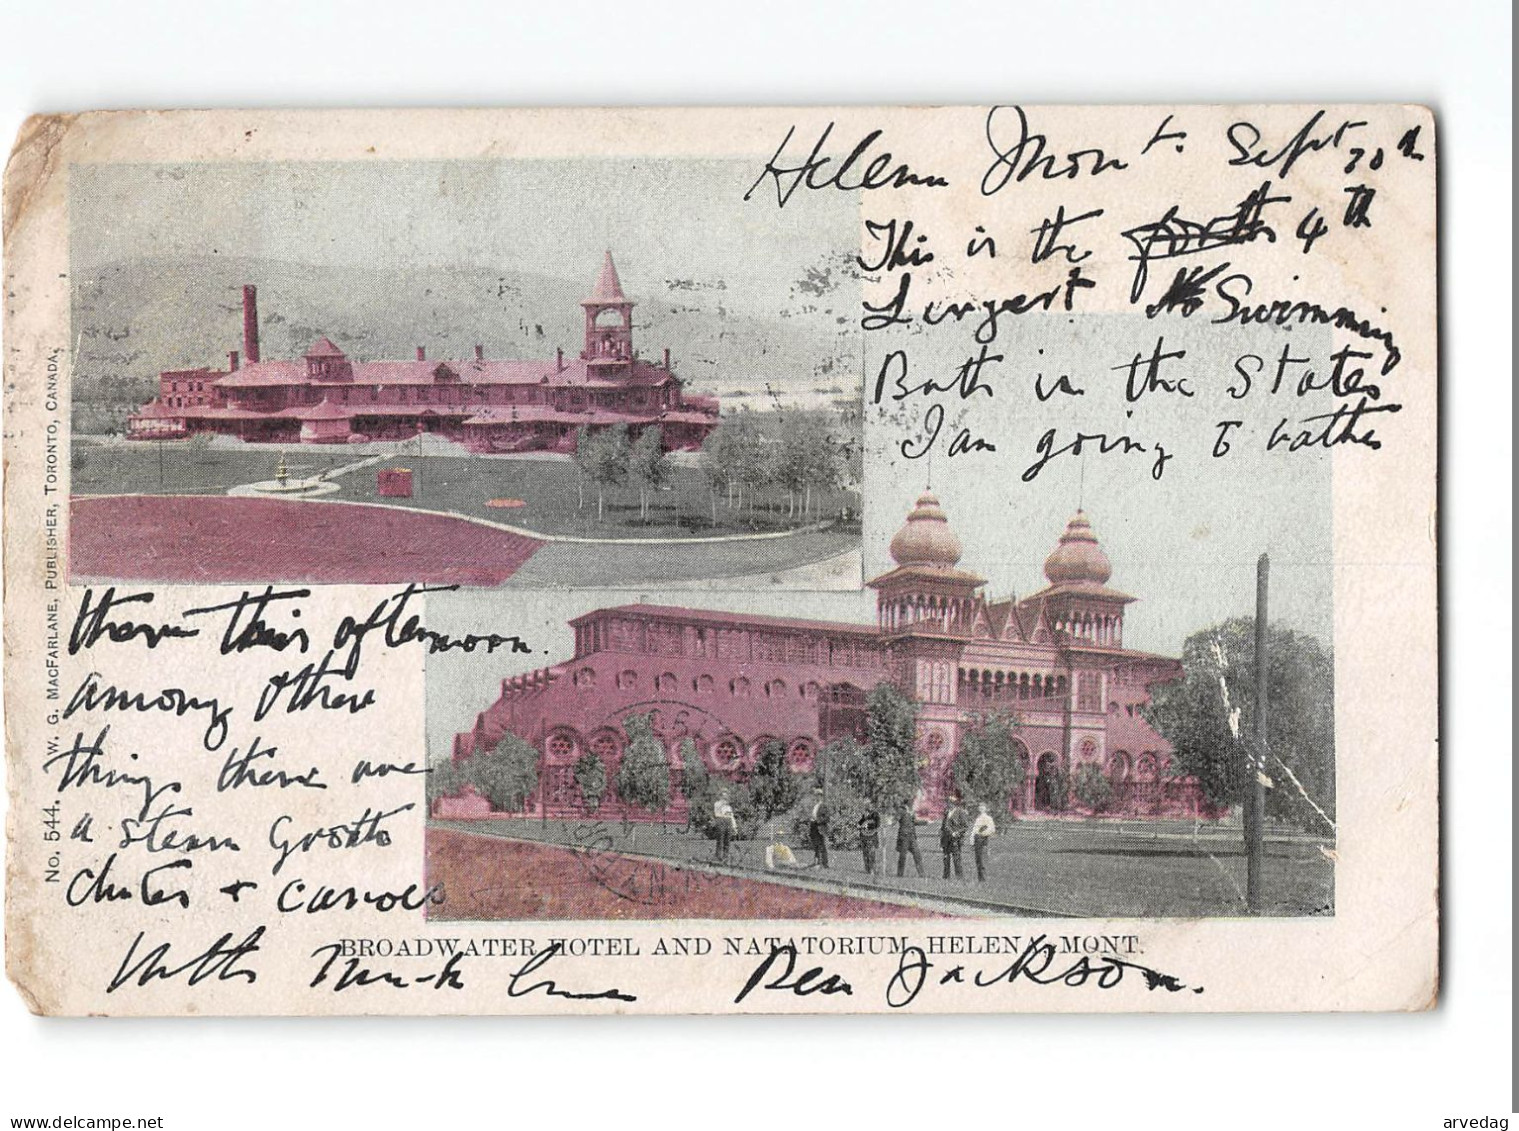 Helena Mont. Sept 30th
This is the forth 4th
Largest Swimming
Bath in the States
I am going to bathe
there this afternoon.
among other
things there are
a steam Grotto
chutes + canoes
With much love Ben Jackson.
BROADWATER HOTEL AND NATATORIUM, HELENA, MONT.
No. 544. W. G. MACFARLANE, PUBLISHER, TORONTO, CANADA.
www.delcampe.net
arvedag